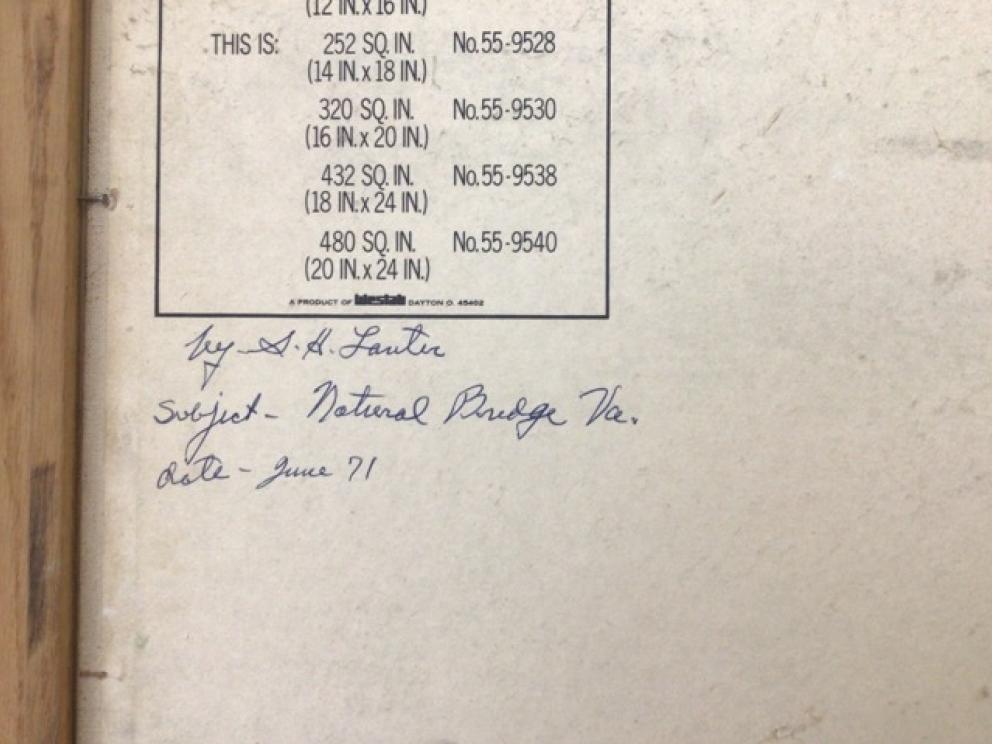 (12 IN. x 16 IN.)
THIS IS: 252 SQ. IN. No. 55-9528
(14 IN. x 18 IN.)
320 SQ. IN. No. 55-9530
(16 IN. x 20 IN.)
432 SQ. IN. No. 55-9538
(18 IN. x 24 IN.)
480 SQ. IN. No. 55-9540
(20 IN. x 24 IN.)
A PRODUCT OF Westab DAYTON O. 45402
by - S. H. Lauter
Subject - Natural Bridge Va.
date - June 71